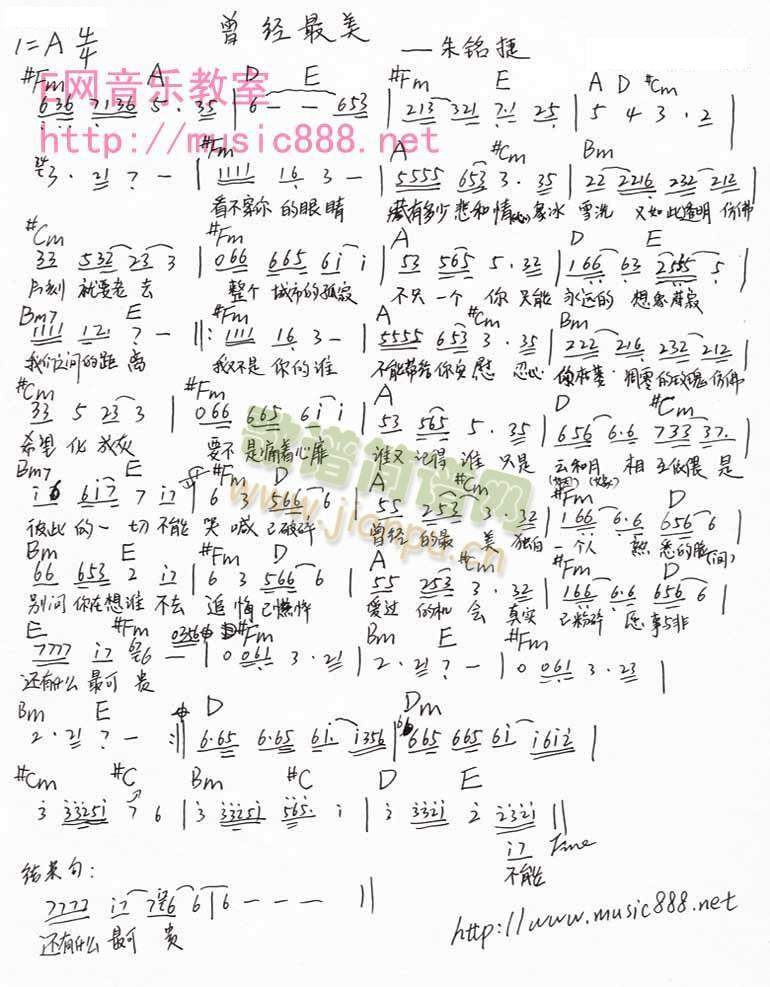 曾经最美
1=A 4/4
——朱铭捷
E网音乐教室
http://music888.net
#Fm A D E #Fm E A D #Cm
636 7136 5· 35 | 6 - - 653 | 213 321 7·1 25 | 5 4 3 · 2 |
#Fm A #Cm Bm
3· 21 7 - | 1111 16 3 - | 5555 653 3· 35 | 22 2216 232 212 |
看不穿你 的眼睛 藏有多少 悲和情 冰雪洗 又如此透明 仿佛
#Cm #Fm A D E
33 532 23 3 | 066 665 6i i | 53 565 5· 32 | 166 63 2555 5 |
片刻 就要老去 整个 城市的孤寂 不只一个 你 只能 永远的 想象
Bm7 E #Fm A #Cm Bm
1111 121 7 - ‖: 1111 16 3 - | 5555 653 3· 35 | 222 216 232 212 |
我们之间的距离 我不是 你的谁 不能带给你安慰 忍心 你枯萎 凋零的玫瑰 仿佛
#Cm #Fm A D #Cm
33 5 23 3 | 066 665 6i i | 53 565 5· 35 | 656 6·6 733 37· |
希望 化成灰 要不 是痛着心扉 谁又记得谁 只是 云和月 相互依偎 是
Bm7 E #Fm D A #Cm #Fm D
i6 6i7 7 i7 | 6 3 566 6 | 55 253 3· 32 | 166 6·6 656 6 |
彼此 的一切 不能 哭喊 已破碎 曾经 的最美 独自 一个人 熟悉的脸(间)
Bm E #Fm D A #Cm #Fm D
66 653 2 i7 | 6 3 566 6 | 55 253 3· 32 | 166 6·6 656 6 |
别问 你在想谁 不去 追悔 已憔悴 爱过 的机会 真实 已粉碎 愿 事与非
E #Fm #Fm Bm E #Fm
7777 i7 6 - | 0 061 3· 21 | 2· 21 7 - | 0 061 3· 23 |
还有什么 最可贵
Bm E D Dm
2· 21 7 - :‖ 6·65 6·65 6i· i356 | 665 665 6i i6i2 |
#Cm #C Bm #C D E
3 33251 7 6 | 3 33251 565· i | 2 3321 2 2321 ‖
i7 Fine
不能
结束句:
7777 i7 766 6 | 6 - - - ‖
还有什么 最可贵
http://www.music888.net
歌谱简谱网
www.jianpu.cn